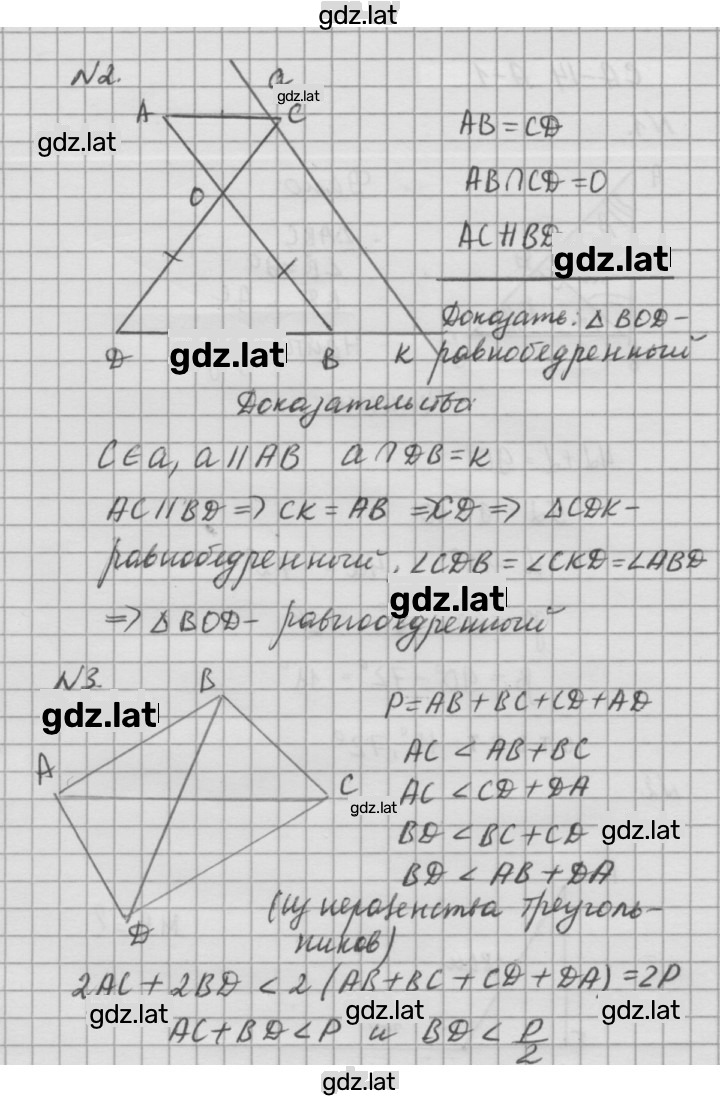 gdz.lat
N2.
a
gdz.lat
A
C
AB = CD
gdz.lat
AB∩CD = O
O
AC∥BD
gdz.lat
Доказать: △ BOD -
D
gdz.lat
B
K
равнобедренный
Доказательство
C∈a, a ∥ AB a ∩ DB = K
AC ∥ BD => CK = AB => CD => △CDK -
равнобедренный. ∠CDB = ∠CKD = ∠ABD
gdz.lat
=> △ BOD - равнобедренный
N3
B
gdz.lat
P = AB + BC + CD + AD
AC < AB + BC
A
C
AC < CD + DA
gdz.lat
BD < BC + CD
gdz.lat
BD < AB + DA
D
(из неравенства треуголь-
ников)
2AC + 2BD < 2 (AB + BC + CD + DA) = 2P
gdz.lat
gdz.lat
gdz.lat
AC + BD < P и BD < P/2
gdz.lat